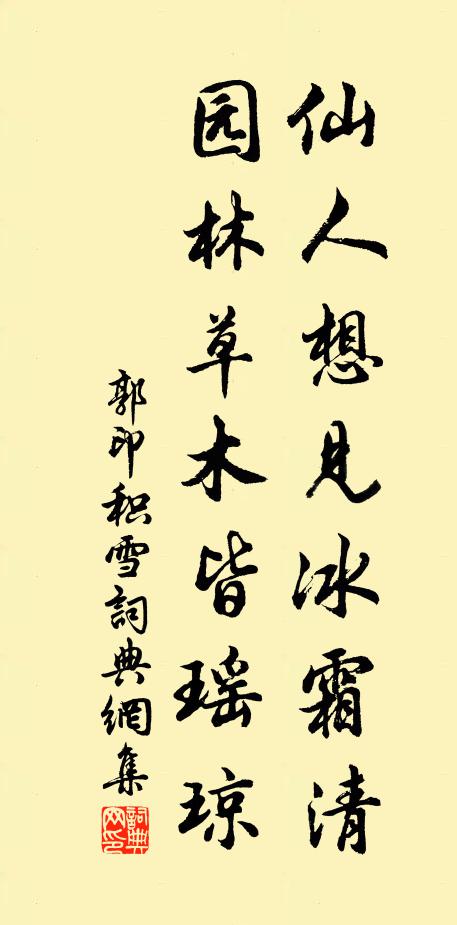 仙人想见冰霜清
园林草木皆瑶琼
郭印积雪詞典網集
詞典网印